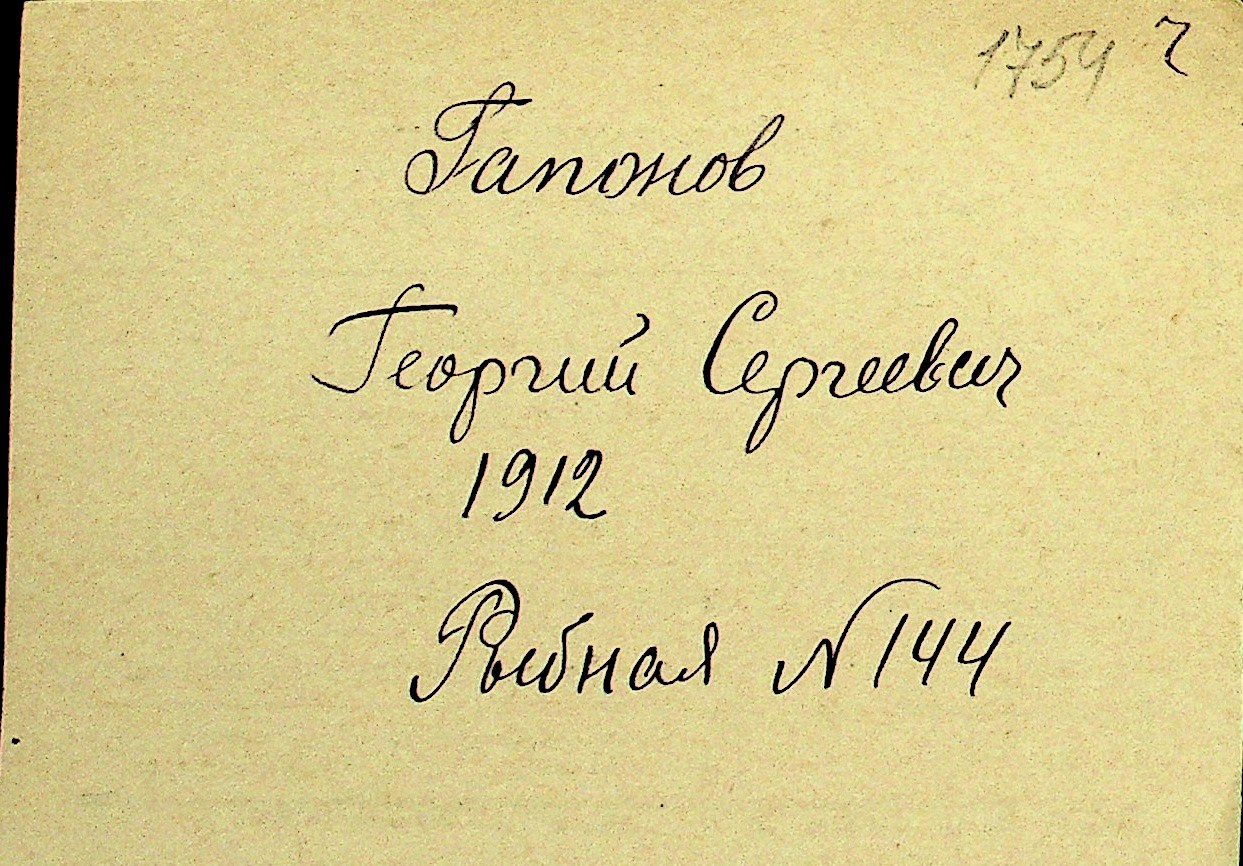 1754 ч
Гапонов
Георгий Сергеевич
1912
Рыбная N 144